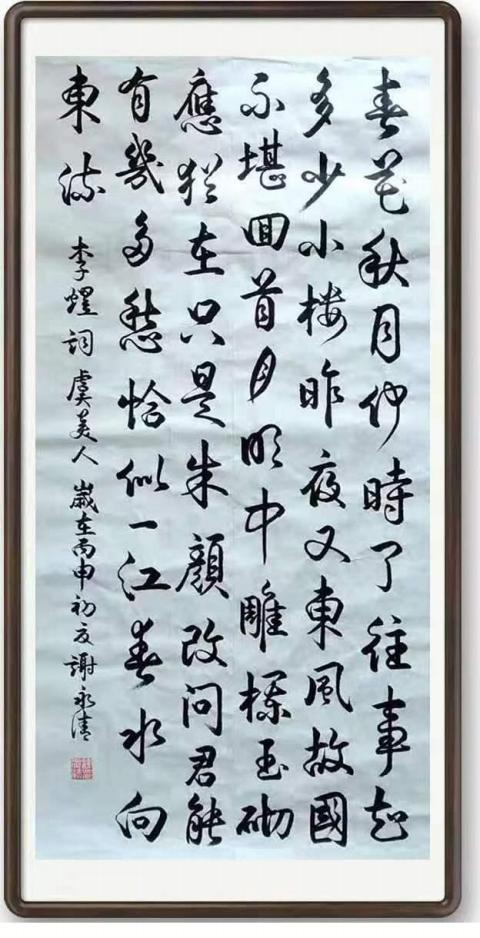 春花秋月何時了往事知
多少小樓昨夜又東風故國
不堪回首月明中雕欄玉砌
應猶在只是朱顏改問君能
有幾多愁恰似一江春水向
東流 李煜詞虞美人 歲在丙申初夏謝永清